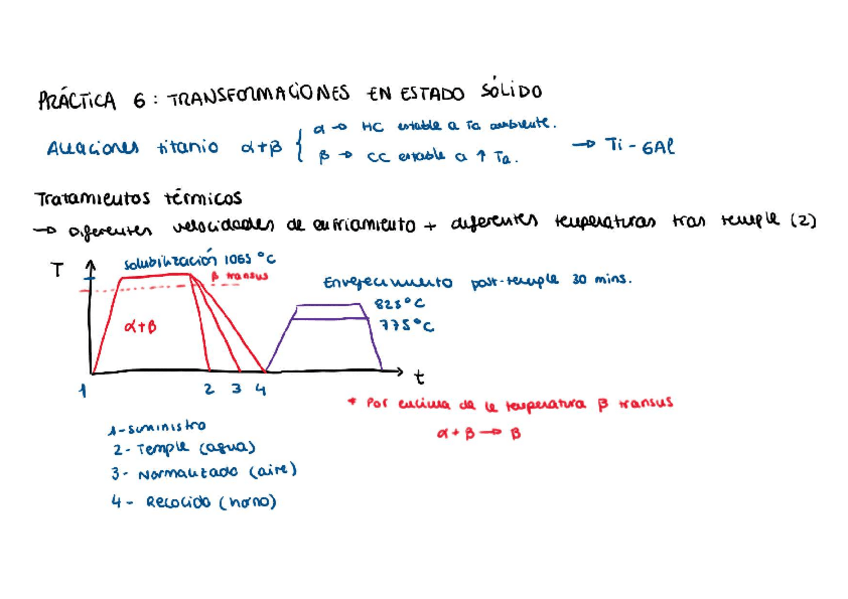 PRÁCTICA 6: TRANSFORMACIONES EN ESTADO SÓLIDO
α → HC estable a Ta ambiente.
Aleaciones titanio α+β { → Ti-6Al
β → CC estable a ↑ Ta.
Tratamientos térmicos
→ diferentes velocidades de enfriamiento + diferentes temperaturas tras temple (2)
T
solubilización 1065 °C
β transus
Envejecimiento post-temple 30 mins.
825°C
775°C
α+β
t
1 2 3 4
* Por encima de la temperatura β transus
α+β → β
1-suministro
2- Temple (agua)
3- Normalizado (aire)
4- Recocido (horno)